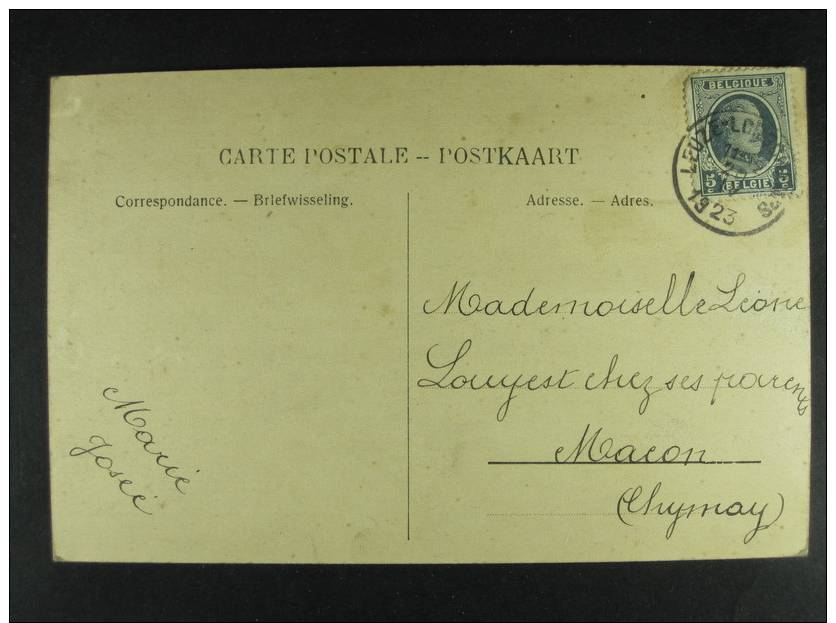 CARTE POSTALE -- POSTKAART
Correspondance. — Briefwisseling.
Adresse. — Adres.
BELGIQUE
5c 5c
BELGIE
1923
Mademoiselle Léone
Louyest chez ses parents
Macon
(Chymay)
Marie
Josée